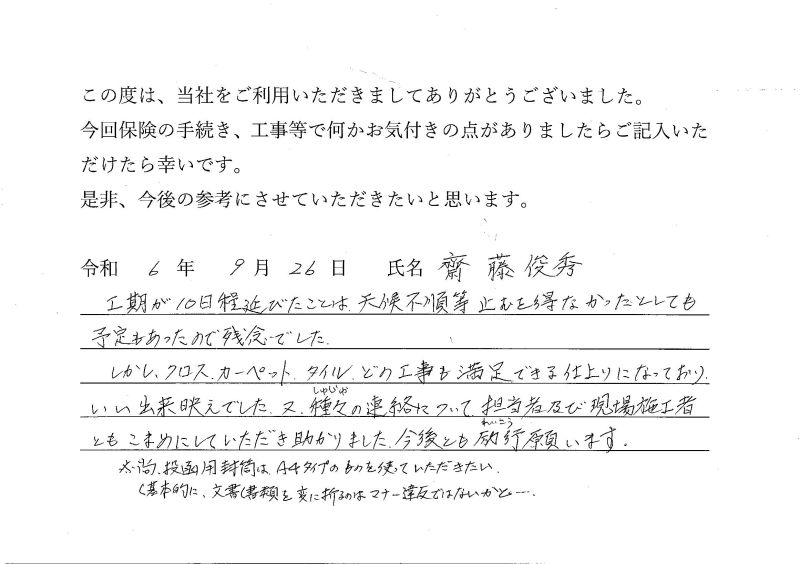 この度は、当社をご利用いただきましてありがとうございました。
今回保険の手続き、工事等で何かお気付きの点がありましたらご記入いた
だけたら幸いです。
是非、今後の参考にさせていただきたいと思います。
令和 6 年 9 月 26 日 氏名 齋藤俊秀
工期が10日程延びたことは、天候不順等止むを得なかったとしても
予定もあったので残念でした。
しかし、クロス、カーペット、タイル、どの工事も満足できる仕上りになっており、
いい出来映えでした。又、種々の連絡について、担当者及び現場施工者
しゅじゅ
ともこまめにしていただき助かりました。今後とも励行願います。
れいこう
※尚、投函用封筒は、A4タイプのものを使っていただきたい。
(基本的に、文書(書類)を変に折るのはマナー違反ではないかと….